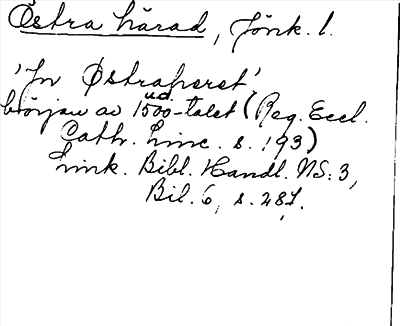 Östra härad, Jönk. l.
'Jn Østrahæret',
ud.
början av 1500-talet (Reg. Eccl.
Cath. Linc. s. 193)
Link. Bibl. Handl. NS: 3,
Bil. 6, s. 281.